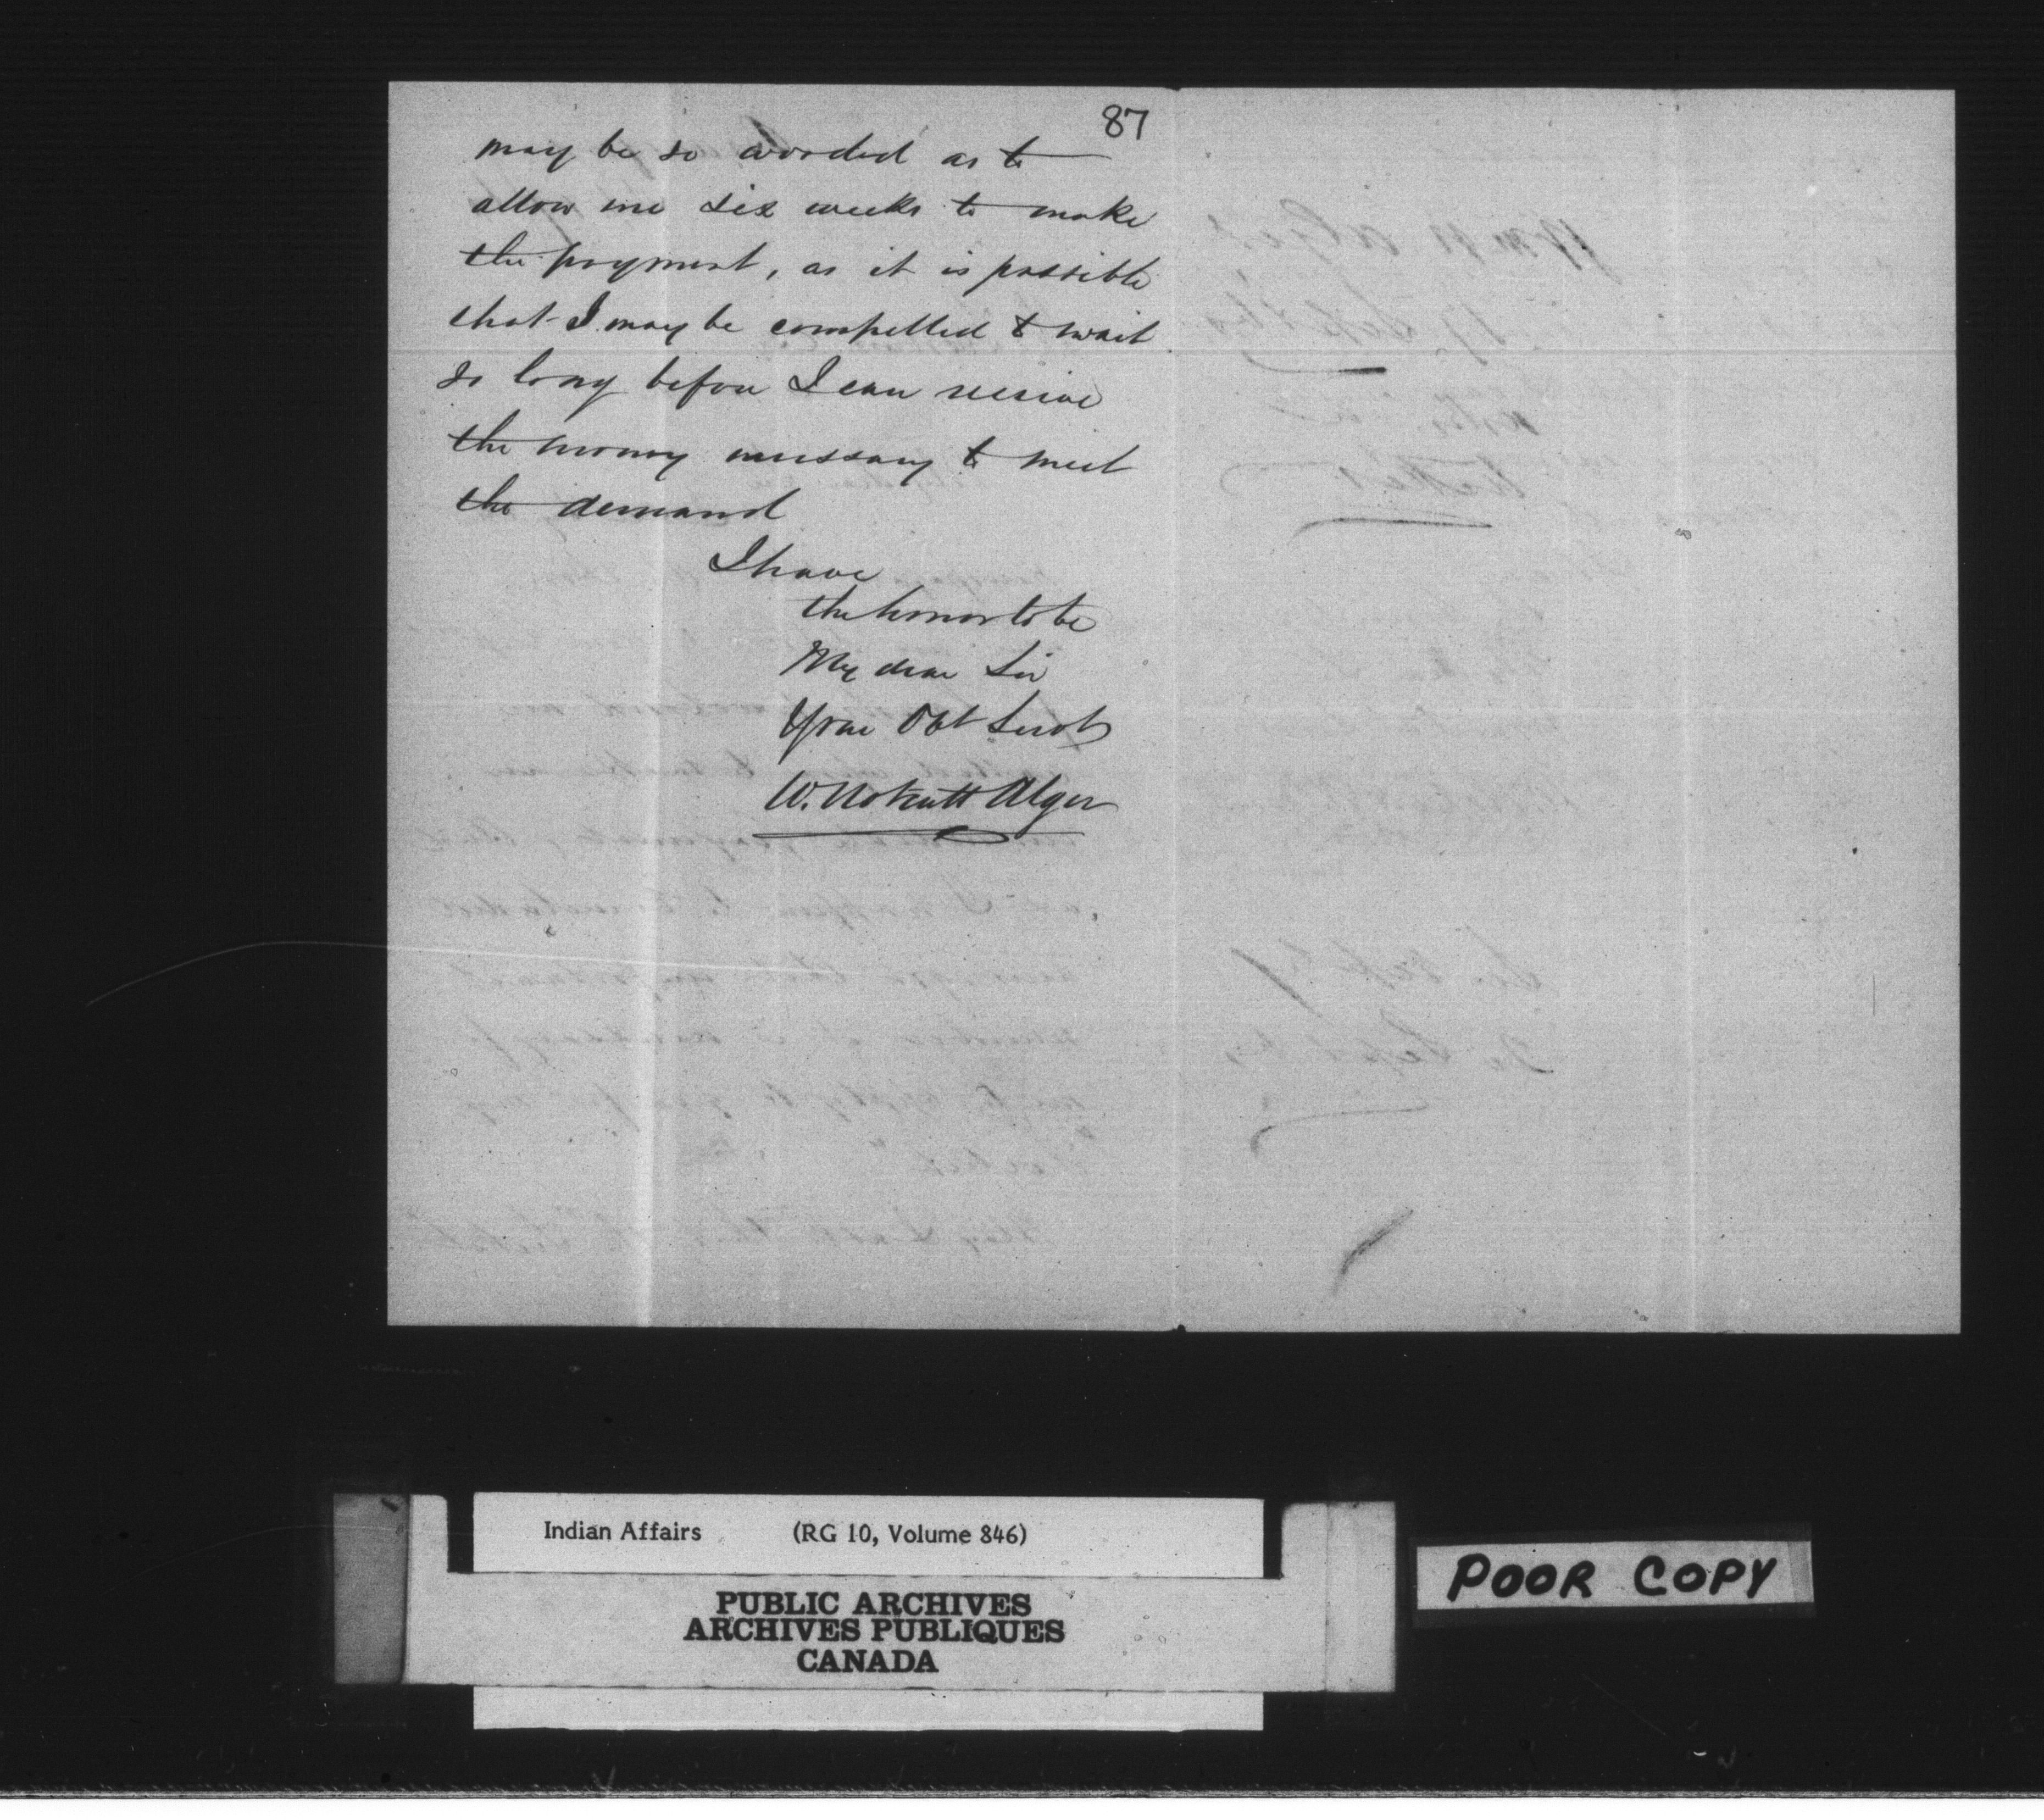 87
may be so worded as to
allow me six weeks to make
the payment, as it is possible
that I may be compelled to wait
so long before I can receive
the money necessary to meet
the demand
I have
the honor to be
My dear Sir
Your Obt Servt
W. Notcutt Alger
Indian Affairs (RG 10, Volume 846)
PUBLIC ARCHIVES
ARCHIVES PUBLIQUES
CANADA
POOR COPY